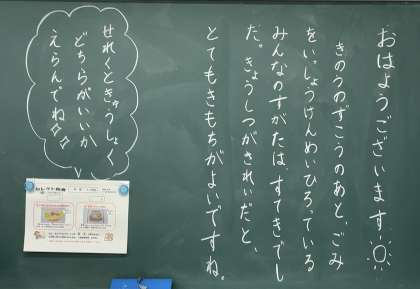 おはようございます。
きのうのずこうのあと、ごみ
をいっしょうけんめいひろっている
みんなのすがたは、すてきでし
た。きょうしつがきれいだと、
とてもきもちがよいですね。
せれくときゅうしょく
どちらがいいか
えらんでね
セレクト給食